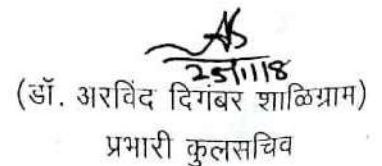 25/11/18
(डॉ. अरविंद दिगंबर शाळिग्राम)
प्रभारी कुलसचिव